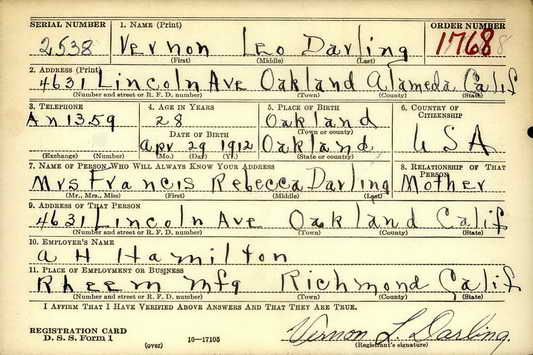 SERIAL NUMBER 1. NAME (Print) ORDER NUMBER
2538 Vernon Leo Darling 1768 8
(First) (Middle) (Last)
2. ADDRESS (Print)
4631 Lincoln Ave Oakland Alameda Calif
(Number and street or R. F. D. number) (Town) (County) (State)
3. TELEPHONE 4. AGE IN YEARS 5. PLACE OF BIRTH 6. COUNTRY OF CITIZENSHIP
An 1359 28 Oakland
DATE OF BIRTH (Town or county)
Apr 29 1912 Oakland USA
(Exchange) (Number) (Mo.) (Day) (Yr.) (State or country)
7. NAME OF PERSON WHO WILL ALWAYS KNOW YOUR ADDRESS 8. RELATIONSHIP OF THAT PERSON
Mrs Francis Rebecca Darling Mother
(Mr., Mrs., Miss) (First) (Middle) (Last)
9. ADDRESS OF THAT PERSON
4631 Lincoln Ave Oakland Calif
(Number and street or R. F. D. number) (Town) (County) (State)
10. EMPLOYER'S NAME
A H Hamilton
11. PLACE OF EMPLOYMENT OR BUSINESS
Rheem Mfg Richmond Calif
(Number and street or R. F. D. number) (Town) (County) (State)
I AFFIRM THAT I HAVE VERIFIED ABOVE ANSWERS AND THAT THEY ARE TRUE.
REGISTRATION CARD
D. S. S. Form 1 (over) 16—17105
Vernon L. Darling.
(Registrant's signature)